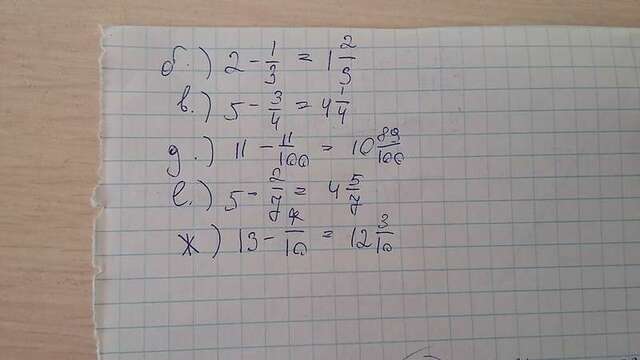 б.) 2 - 1/3 = 1 2/3
в.) 5 - 3/4 = 4 1/4
д.) 11 - 11/100 = 10 89/100
е.) 5 - 2/7 = 4 5/7
ж) 13 - 7/10 = 12 3/10